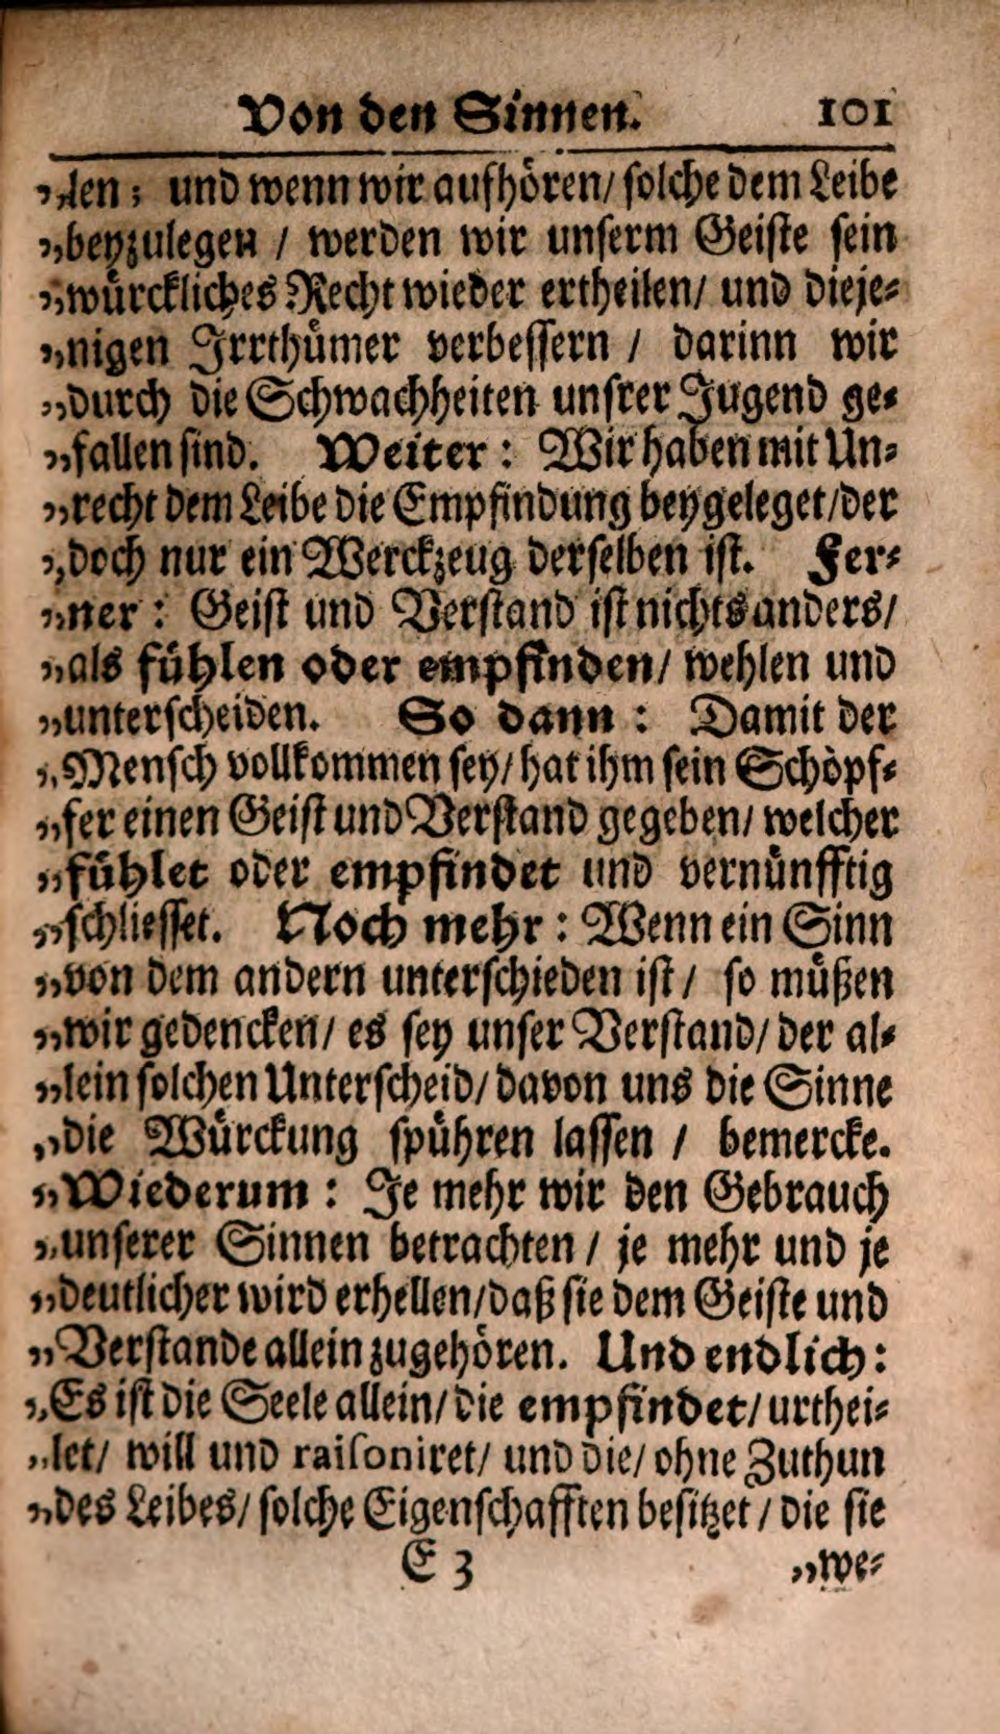 Von den Sinnen. 101
„len; und wenn wir aufhören/ solche dem Leibe
„beyzulegen / werden wir unserm Geiste sein
„würckliches Recht wieder ertheilen/ und dieje-
„nigen Irrthümer verbessern / darinn wir
„durch die Schwachheiten unsrer Jugend ge-
„fallen sind. Weiter: Wir haben mit Un-
„recht dem Leibe die Empfindung beygeleget/der
„doch nur ein Werckzeug derselben ist. Fer-
„ner: Geist und Verstand ist nichts anders/
„als fühlen oder empfinden/ wehlen und
„unterscheiden. So dann: Damit der
„Mensch vollkommen sey/ hat ihm sein Schöpf-
„fer einen Geist und Verstand gegeben/ welcher
„fühlet oder empfindet und vernünfftig
„schliesset. Noch mehr: Wenn ein Sinn
„von dem andern unterschieden ist/ so müßen
„wir gedencken/ es sey unser Verstand/ der al-
„lein solchen Unterscheid/ davon uns die Sinne
„die Würckung spühren lassen / bemercke.
„Wiederum: Je mehr wir den Gebrauch
„unserer Sinnen betrachten / je mehr und je
„deutlicher wird erhellen/daß sie dem Geiste und
„Verstande allein zugehören. Und endlich:
„Es ist die Seele allein/ die empfindet/ urthei-
„let/ will und raisoniret/ und die/ ohne Zuthun
„des Leibes/ solche Eigenschafften besitzet / die sie
E 3 „we-